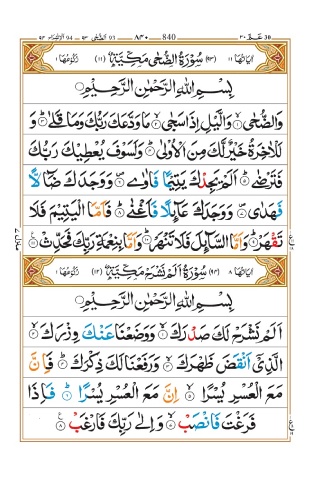 عم ٣٠ 840 ٨٤٠ الضحى ٩٣ الانشراح ٩٤
اٰيَاتُهَا ١١ (٩٣) سُوْرَةُ الضُّحٰى مَكِّيَّةٌ (١١) رُكُوْعُهَا ١
بِسْمِ اللّٰهِ الرَّحْمٰنِ الرَّحِيْمِ
وَالضُّحٰى ۙ﴿۱﴾ وَالَّيْلِ اِذَا سَجٰى ۙ﴿۲﴾ مَا وَدَّعَكَ رَبُّكَ وَمَا قَلٰى ؕ﴿۳﴾ وَ
لَلْاٰخِرَةُ خَيْرٌ لَّكَ مِنَ الْاُوْلٰى ؕ﴿۴﴾ وَلَسَوْفَ يُعْطِيْكَ رَبُّكَ
فَتَرْضٰى ؕ﴿۵﴾ اَلَمْ يَجِدْكَ يَتِيْمًا فَاٰوٰى ۪﴿۶﴾ وَوَجَدَكَ ضَآلًّا
فَهَدٰى ۪﴿۷﴾ وَوَجَدَكَ عَآئِلًا فَاَغْنٰى ؕ﴿۸﴾ فَاَمَّا الْيَتِيْمَ فَلَا
تَقْهَرْ ؕ﴿۹﴾ وَاَمَّا السَّآئِلَ فَلَا تَنْهَرْ ؕ﴿۱۰﴾ وَاَمَّا بِنِعْمَةِ رَبِّكَ فَحَدِّثْ ﴿۱۱﴾
اٰيَاتُهَا ٨ (٩٤) سُوْرَةُ اَلَمْ نَشْرَحْ مَكِّيَّةٌ (١٢) رُكُوْعُهَا ١
بِسْمِ اللّٰهِ الرَّحْمٰنِ الرَّحِيْمِ
اَلَمْ نَشْرَحْ لَكَ صَدْرَكَ ۙ﴿۱﴾ وَوَضَعْنَا عَنْكَ وِزْرَكَ ۙ﴿۲﴾
الَّذِيْۤ اَنْقَضَ ظَهْرَكَ ۙ﴿۳﴾ وَرَفَعْنَا لَكَ ذِكْرَكَ ؕ﴿۴﴾ فَاِنَّ
مَعَ الْعُسْرِ يُسْرًا ۙ﴿۵﴾ اِنَّ مَعَ الْعُسْرِ يُسْرًا ؕ﴿۶﴾ فَاِذَا
فَرَغْتَ فَانْصَبْ ۙ﴿۷﴾ وَاِلٰى رَبِّكَ فَارْغَبْ ﴿۸﴾